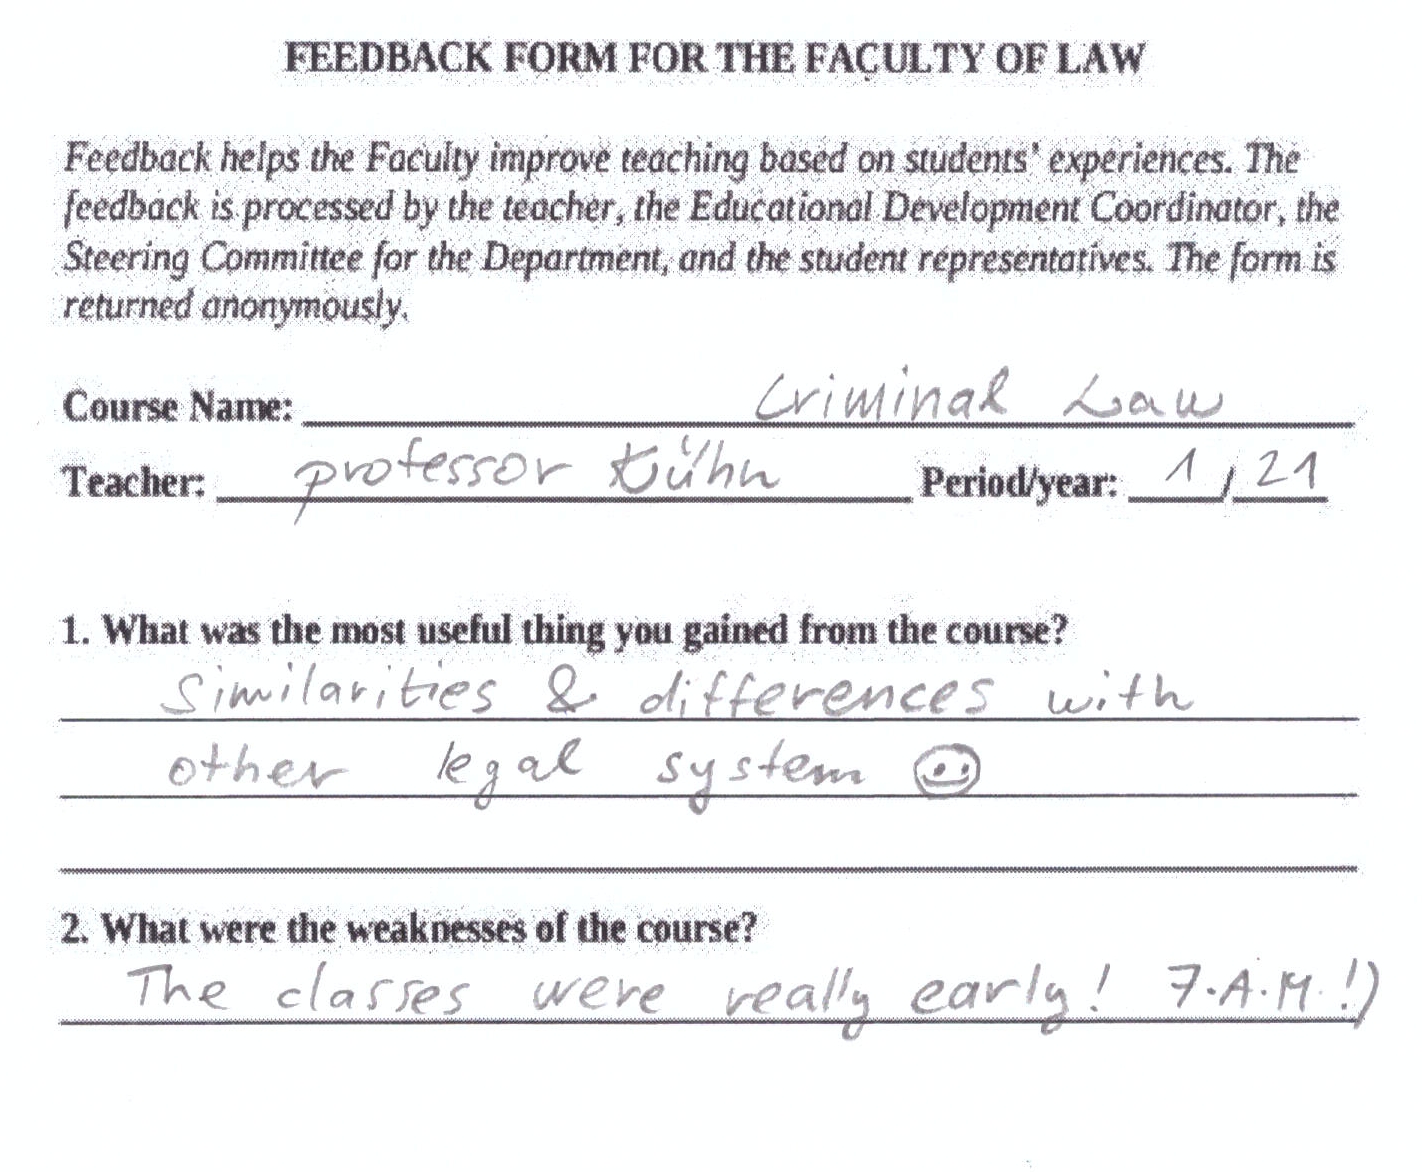 FEEDBACK FORM FOR THE FACULTY OF LAW
Feedback helps the Faculty improve teaching based on students' experiences. The
feedback is processed by the teacher, the Educational Development Coordinator, the
Steering Committee for the Department, and the student representatives. The form is
returned anonymously.
Course Name: Criminal Law
Teacher: professor Kühn Period/year: 1/21
1. What was the most useful thing you gained from the course?
Similarities & differences with
other legal system
2. What were the weaknesses of the course?
The classes were really early! 7.A.M.!)